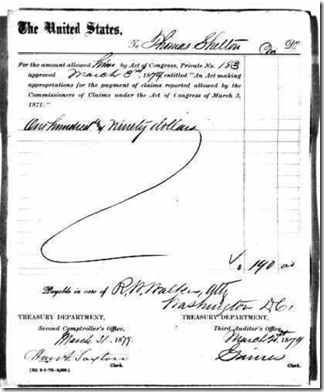 The United States,
To Thomas Shelton Dr.
For the amount allowed him by Act of Congress, Private No. 183
approved March 3rd 1879 entitled "An Act making
appropriations for the payment of claims reported allowed by the
Commissioners of Claims under the Act of Congress of March 3,
1871."
One hundred & Ninety dollars
190 00
Payable in care of R. W. Walker, Atty
Washington D.C.
TREASURY DEPARTMENT, TREASURY DEPARTMENT,
Second Comptroller's Office, Third Auditor's Office,
March 31. 1879 March 1879
Clerk. Clerk.